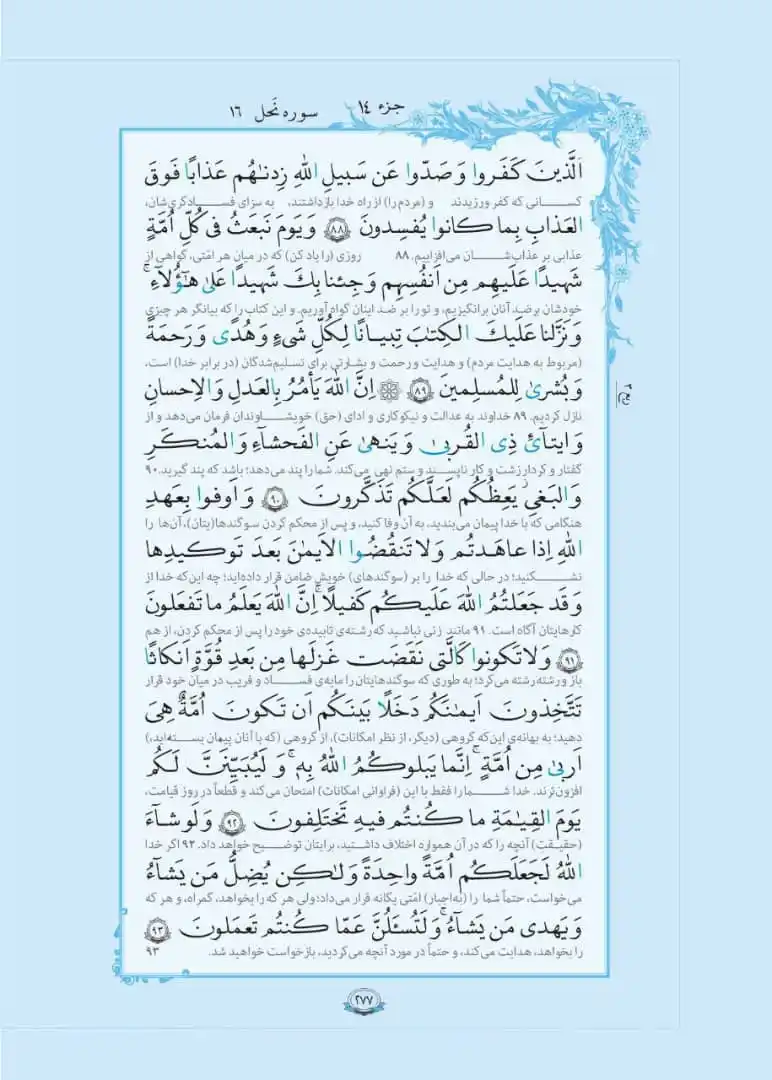 جزء ١٤
سوره نَحل ١٦
اَلَّذينَ كَفَروا وَ صَدّوا عَن سَبيلِ اللهِ زِدنـٰهُم عَذابًا فَوقَ
کسانی که کفر ورزیدند و (مردم را) از راه خدا بازداشتند، به سزای فسادگری‌شان،
العَذابِ بِما كانوا يُفسِدونَ ﴿٨٨﴾ وَ يَومَ نَبعَثُ فى كُلِّ اُمَّةٍ
عذابی بر عذاب‌شان می‌افزاییم. ۸۸ روزی (را یاد کن) که در میان هر امّتی، گواهی از
شَهيدًا عَلَيهِم مِن اَنفُسِهِم وَ جِئنا بِكَ شَهيدًا عَلىٰ هـٰؤُلاءِ ۚ
خودشان بر ضد آنان برانگیزیم، و تو را بر ضد اینان گواه آوریم. و این کتاب را که بیانگر هر چیزی
وَ نَزَّلنا عَلَيكَ الكِتـٰبَ تِبيـانًا لِكُلِّ شَىءٍ وَ هُدًى وَ رَحمَةً
(مربوط به هدایت مردم) و هدایت و رحمت و بشارتی برای تسلیم‌شدگان (در برابر خدا) است،
وَ بُشرىٰ لِلمُسلِمينَ ﴿٨٩﴾ ۞ اِنَّ اللهَ يَأمُرُ بِالعَدلِ وَ الاِحسانِ
نازل کردیم. ۸۹ خداوند به عدالت و نیکوکاری و ادای (حق) خویشاوندان فرمان می‌دهد و از
وَ ايتآئِ ذِى القُربىٰ وَ يَنهىٰ عَنِ الفَحشآءِ وَ المُنكَرِ
گفتار و کردار زشت و کار ناپسند و ستم نهی می‌کند. شما را پند می‌دهد؛ باشد که پند گیرید. ۹۰
وَ البَغىِ ۚ يَعِظُكُم لَعَلَّكُم تَذَكَّرونَ ﴿٩٠﴾ وَ اَوفوا بِعَهدِ
هنگامی که با خدا پیمان می‌بندید، به آن وفا کنید، و پس از محکم کردن سوگندها(یتان)، آن‌ها را
اللهِ اِذا عاهَدتُم وَ لا تَنقُضُوا الاَيمـٰنَ بَعدَ تَوكيدِها
نشکنید؛ در حالی که خدا را بر (سوگندهای) خویش ضامن قرار داده‌اید؛ چه این‌که خدا از
وَ قَد جَعَلتُمُ اللهَ عَلَيكُم كَفيلًا ۚ اِنَّ اللهَ يَعلَمُ ما تَفعَلونَ
کارهایتان آگاه است. ۹۱ مانند زنی نباشید که رشته‌ی تابیده‌ی خود را پس از محکم کردن، از هم
﴿٩١﴾ وَ لا تَكونوا كَالَّتى نَقَضَت غَزلَها مِن بَعدِ قُوَّةٍ اَنكاثًا
باز و رشته رشته می‌کرد؛ به طوری که سوگندهایتان را مایه‌ی فساد و فریب در میان خود قرار
تَتَّخِذونَ اَيمـٰنَكُم دَخَلًا بَينَكُم اَن تَكونَ اُمَّةٌ هِىَ
دهید؛ به بهانه‌ی این‌که گروهی (دیگر، از نظر امکانات)، از گروهی (که با آنان پیمان بسته‌اید،)
اَربىٰ مِن اُمَّةٍ ۚ اِنَّما يَبلوكُمُ اللهُ بِهِ ۚ وَ لَيُبَيِّنَنَّ لَكُم
افزون‌ترند. خدا شما را فقط با این (فراوانی امکانات) امتحان می‌کند و قطعاً در روز قیامت،
يَومَ القِيـٰمَةِ ما كُنتُم فيهِ تَختَلِفونَ ﴿٩٢﴾ وَ لَو شآءَ
(حقیقتِ) آنچه را که در آن همواره اختلاف داشتید، برایتان توضیح خواهد داد. ۹۲ اگر خدا
اللهُ لَجَعَلَكُم اُمَّةً واحِدَةً وَ لـٰكِن يُضِلُّ مَن يَشآءُ
می‌خواست، حتماً شما را (به‌اجبار) امّتی یگانه قرار می‌داد؛ ولی هر که را بخواهد، گمراه، و هر که
وَ يَهدى مَن يَشآءُ ۚ وَ لَتُسـَٔلُنَّ عَمّا كُنتُم تَعمَلونَ ﴿٩٣﴾
را بخواهد، هدایت می‌کند، و حتماً در مورد آنچه می‌کردید، بازخواست خواهید شد. ۹۳
٢٧٧